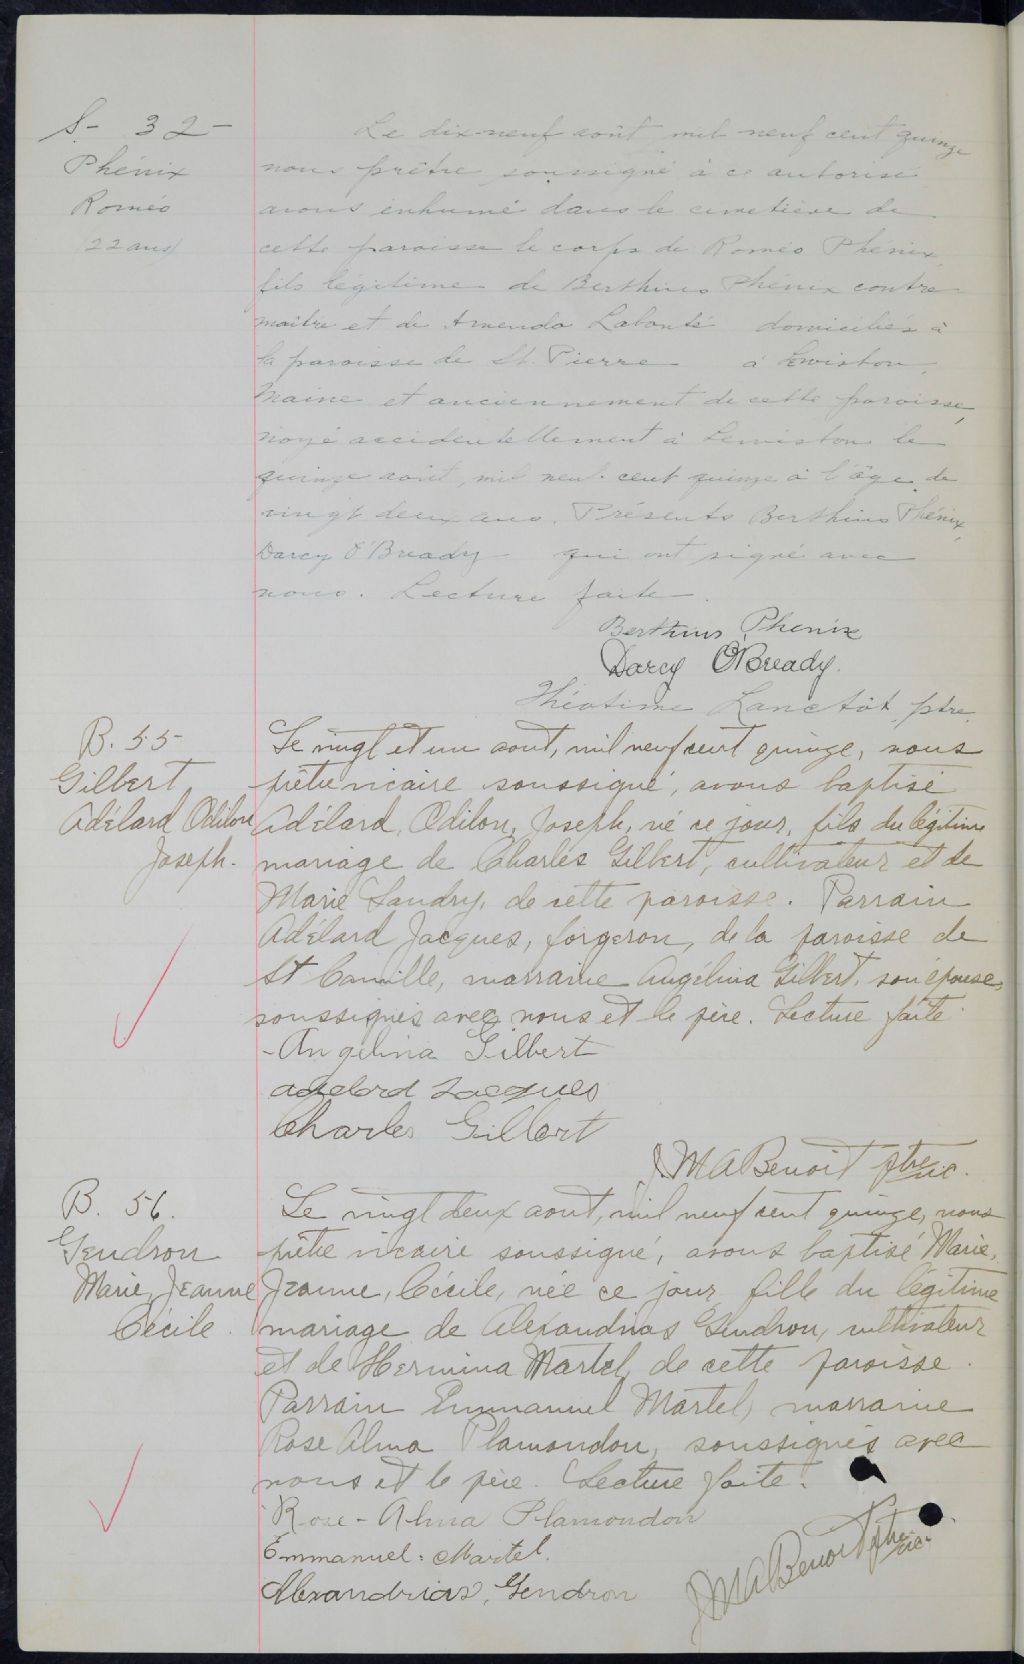 S- 32-
Phénix
Roméo
22 ans
Le dix-neuf août mil neuf cent quinze
nous prêtre soussigné à ce autorisé
avons inhumé dans le cimetière de
cette paroisse le corps de Roméo Phénix,
fils légitime de Berthius Phénix contre-
maître et de Amenda Labonté domiciliés à
la paroisse de St. Pierre à Lewiston,
Maine et anciennement de cette paroisse,
noyé accidentellement à Lewiston le
quinze août, mil neuf cent quinze à l'âge de
vingt deux ans. Présents Berthius Phénix,
Darcy O'Bready qui ont signé avec
nous. Lecture faite.
Berthius Phenix
Darcy O'Bready.
Théotime Lanctôt ptre
B. 55
Gilbert
Adélard Odilon
Joseph.
Le vingt et un aout, mil neuf cent quinze, nous
prêtre vicaire soussigné, avons baptisé
Adélard, Odilon, Joseph, né ce jour, fils du légitime
mariage de Charles Gilbert, cultivateur et de
Marie Landry, de cette paroisse. Parrain
Adélard Jacques, forgeron, de la paroisse de
St Camille, marraine Angélina Gilbert, son épouse,
soussignés avec nous et le père. Lecture faite.
-Angelina Gilbert
adelord Jacques
Charles Gilbert
J. M A Benoit ptre vic.
B. 56.
Gendron
Marie, Jeanne
Cécile.
Le vingt deux aout, mil neuf cent quinze, nous
prêtre vicaire soussigné, avons baptisé Marie,
Jeanne, Cécile, née ce jour, fille du légitime
mariage de Alexandrias Gendron, cultivateur
et de Hermina Martel, de cette paroisse.
Parrain Emmanuel Martel, marraine
Rose Alma Plamondon, soussignés avec
nous et le père. Lecture faite.
Rose-Alma Plamondon
Emmanuel. Martel.
Alexandrias, Gendron
J M A Benoit ptre vic.